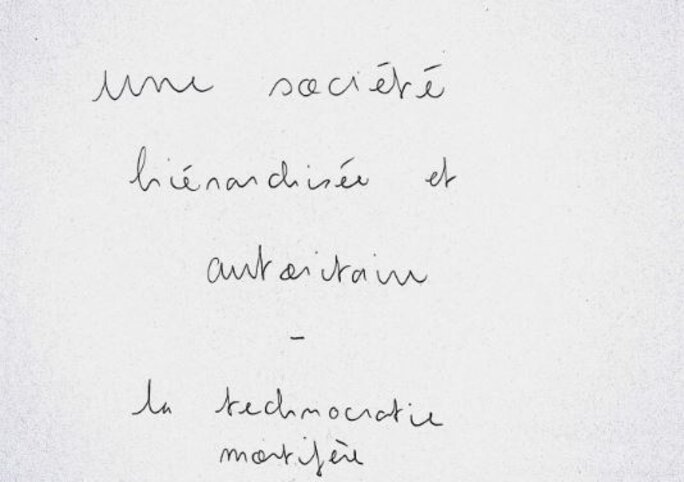 une société
hiérarchisée et
autoritaire
-
la technocratie
mortifère